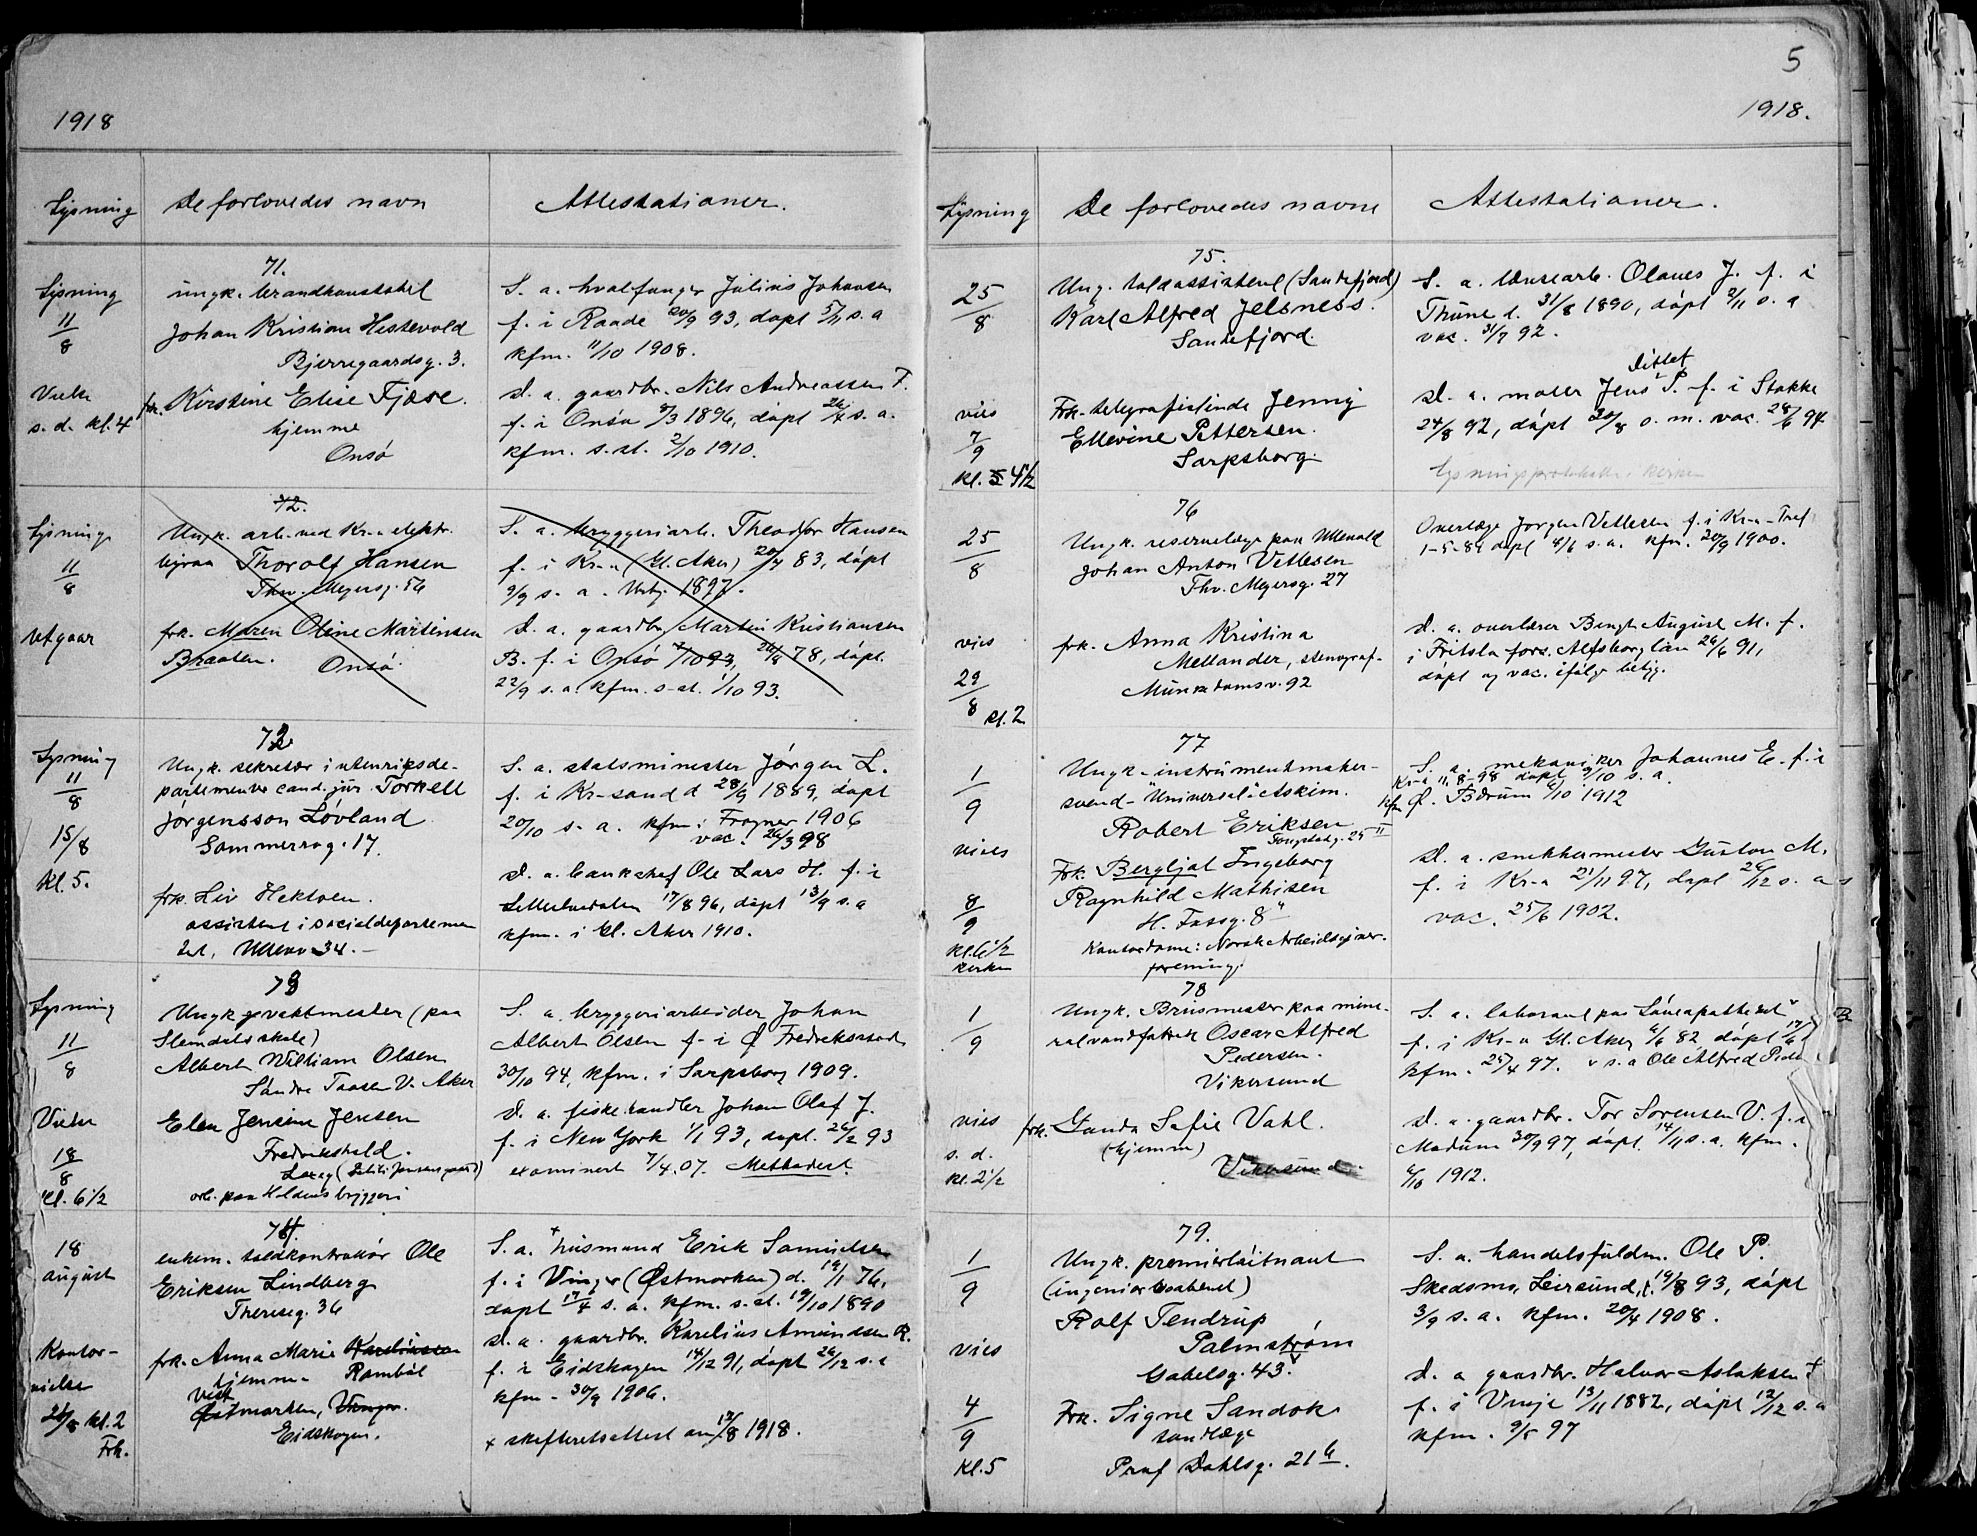 1918
Lysning
De forlovedes navn
Attestationer.
71.
Lysning
11/8
Vielse
s. d. kl. 4
ungk. brandkonstabel
Johan Kristian Hestevold
Bjerregaardsg. 3.
frk. Kirstine Elise Fjære.
hjemme
Onsö
S. a. hvalfanger Julius Johansen
f. i Raade 20/9 93, döpt 5/11 s. a
kfm. 11/10 1908.
D. a. gaardbr. Nils Andreassen F.
f. i Onsö 9/3 1896, döpt 26/4 s. a.
kfm. s. st. 2/10 1910.
72.
Lysning
11/8
utgaar
Ungk. arb. ved Kr.a elektr.
byraa Thorolf Hansen
Thv. Meyersg. 56
frk. Maren Oline Martinsen
Braaten. Onsö
S. a. bryggeriarb. Theodor Hansen
f. i Kr-a (Gl. Aker) 20/7 83, döpt
9/9 s. a. Utbg. 1897.
D. a. gaardbr. Martin Kristiansen
B. f. i Onsö 26/8 78, döpt.
22/9 s. a. kfm. s. st. 1/10 93.
72
Lysning
11/8
15/8
kl. 5.
Ungk. sekretær i utenriksde-
partementet cand. jur. Torkell
Jörgensson Lövland
Sommerrog. 17.
frk. Liv Hektoen.
assistent i socialdepartemen
tet, Ullevv. 34.-
S. a. statsminister Jörgen L.
f. i Kr-sand d 28/9 1889, döpt
20/10 s. a. kfm. i Frogner 1906
vac. 26/3 98
D. a. bankchef Ole Lars H. f. i
Lilleelvedalen 17/8 96, döpt 13/9 s. a
kfm. i Gl. Aker 1910.
73
Lysning
11/8
Vielse
18/8
kl. 6 1/2
Ungk. vaktmester (paa
Slemdals skole)
Albert William Olsen
Söndre Taasen V. Aker
Elen Jensine Jensen
Fredrikshald.
arb. paa Haldens bryggeri
S. a. bryggeriarbeider Johan
Albert Olsen f. i Ø Fredriksstad
30/10 94, kfm. i Sarpsborg 1909.
D. a. fiskehandler Johan Olaf J.
f. i New York 1/1 93, döpt. 26/2 93
examinert 7/4. 07. Methodist.
74.
18
august
Kontor-
vielse
26/8 kl. 2
Frk.
enkem. toldkontrollör Ole
Eriksen Lindberg
Thereseg. 36
frk. Anna Marie Karelinsen
hjemme Ramböl
Vest
Østmarken, Vinger.
Eidskogen.
S. a. + husmand Erik Samuelsen
f. i Vinger (Østmarken) d. 19/1 76,
döpt 17/4 s. a. kfm. s. st. 19/10 1890
D. a. gaardbr. Karelius Amundsen R.
f. i Eidskogen 14/12 91, döpt 26/12 s. a
kfm. 30/9 1906.
+ skifteretsattest av 13/8 1918.
5
1918.
Lysning
De forlovedes navne
Attestationer.
75.
25/8
vies
7/9
kl. 5 4 1/2
Ung. toldassistent (Sandefjord)
Karl Alfred Jelsness.
Sandefjord.
Frk. telegrafistinde Jenny
Ellevine Pettersen.
Sarpsborg.
S. a. lensearb. Olaves J. f. i
Thune d. 31/8 1890, döpt 2/11 s. a
vac. 31/7 92.
Ditlef
D. a. maler Jens P. f. i Stokke
24/8 92, döpt 30/8 s. m. vac. 28/6 94
lysningsprotokoll i kirken
76
25/8
vies
29/8 kl. 2
Ungk. reservelæge paa Ullevold
Johan Anton Vetlesen
Thv. Meyersg. 27
frk. Anna Kristina
Mellander, stenograf.
Munkedamsv. 92
Overlæge Jørgen Vetlesen f. i Kr-a - Tref.
1-5-84 döpt 8/6 s. a. kfm. 30/9 1900.
D. a. overlærer Bengt August M. f.
i Fritsla fors. Alfsborg län 26/6 91,
döpt og vac. ifölge betyg.
77
1/9
vies
8/9
kl. 6 1/2
kirken
Ungk. instrumentmaker-
svend - Universal: Askim.
Robert Eriksen
25 II
Frk. Bergljot Ingeborg
Ragnhild Mathisen
H. Fossg. 8"
Kontordame: Norsk Arbeidsgiver-
forening.
S. a. mekaniker Johannes E. f. i
Kr-a 11-8-98 döpt 9/10 s. a.
kfm Ø. Bærum 6/10 1912
D. a. snekkermester Gustav M.
f. i Kr-a 21/11 97, döpt 26/12 s. a
vac. 25/6 1902.
78
1/9
vies
s. d.
kl. 2 1/2
Ungk. Brusmester paa mine-
ralvandfabrik Oscar Alfred
Pedersen.
Vikersund
frk. Gunda Sofie Vahl.
(hjemme)
Vikersund.
S. a. laborant paa Löveapotheket v
f. i Kr-a Gl. Aker 6/6 82 döpt
kfm. 25/4 97. v s. a Ole Alfred
D. a. gaardbr. Tor Sorensen V. f. i
Modum 30/9 97, döpt 14/11 s. a. kfm.
6/10 1912.
79.
1/9
vies
4/9
kl. 5
Ungk. premierlöitnant
(ingeniørvaabenet)
Rolf Tendrup
Palmstrøm
Gabelsg. 43.
Frk. Signe Sandok
tandlæge
Prof Dahlsg. 21 b.
S. a. handelsfuldm. Ole P.
Skedsmo, Leirsund, f. 19/8 93, döpt
3/9 s. a. kfm. 20/4 1908.
D. a. gaardbr. Halvor Aslaksen +
f. i Vinje 13/11 1882, döpt 12/12 s. a
kfm. 9/5 97